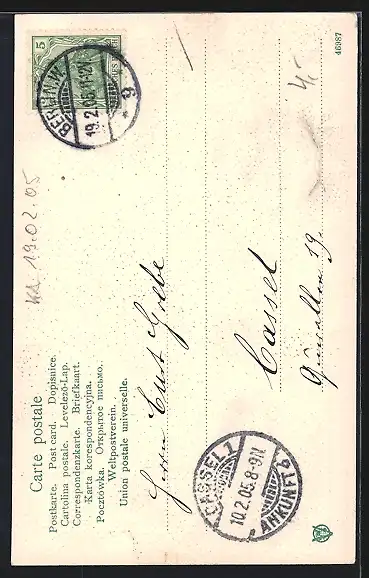 Carte postale
Postkarte. Post card. Dopisnice.
Cartolina postale. Levelező-Lap.
Correspondenzkarte. Briefkaart.
Karta korespondencyjna.
Pocztówka. Открытое письмо.
Weltpostverein.
Union postale universelle.
5
BERLIN.W.
19.2.05.11-12V.
* 9
46987
KA 19.02.05
Herrn Curt Grebe
Cassel
19.
CASSEL 1
10.2.05.8-9N.
ANKUNFT b